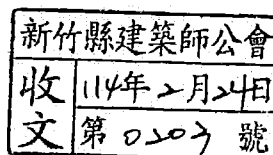 新竹縣建築師公會
收文
114年2月24日
第0203號